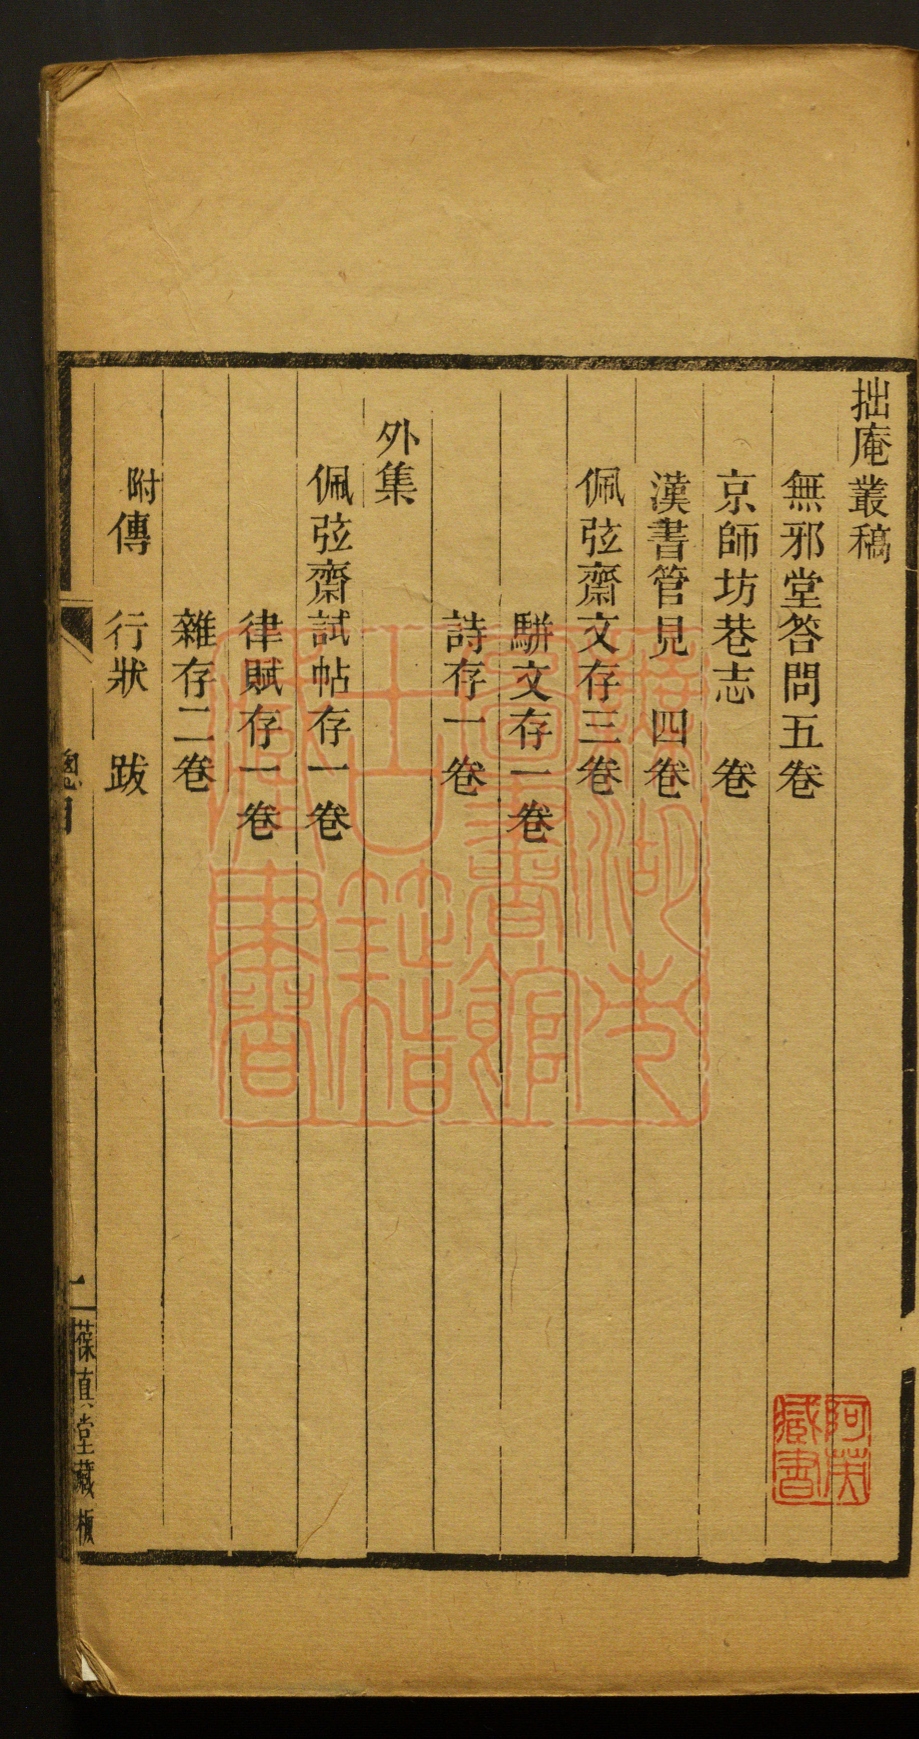 拙庵叢稿
無邪堂答問五卷
京師坊巷志　卷
漢書管見　四卷
佩弦齋文存三卷
駢文存一卷
詩存一卷
外集
佩弦齋試帖存一卷
律賦存一卷
雜存二卷
附傳　行狀　跋
總目
二
葆真堂藏板
蕪湖市圖書館古籍藏書
阿英藏書